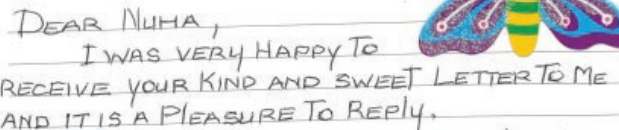 DEAR NUHA,
I WAS VERY HAPPY TO
RECEIVE YOUR KIND AND SWEET LETTER TO ME
AND IT IS A PLEASURE TO REPLY.